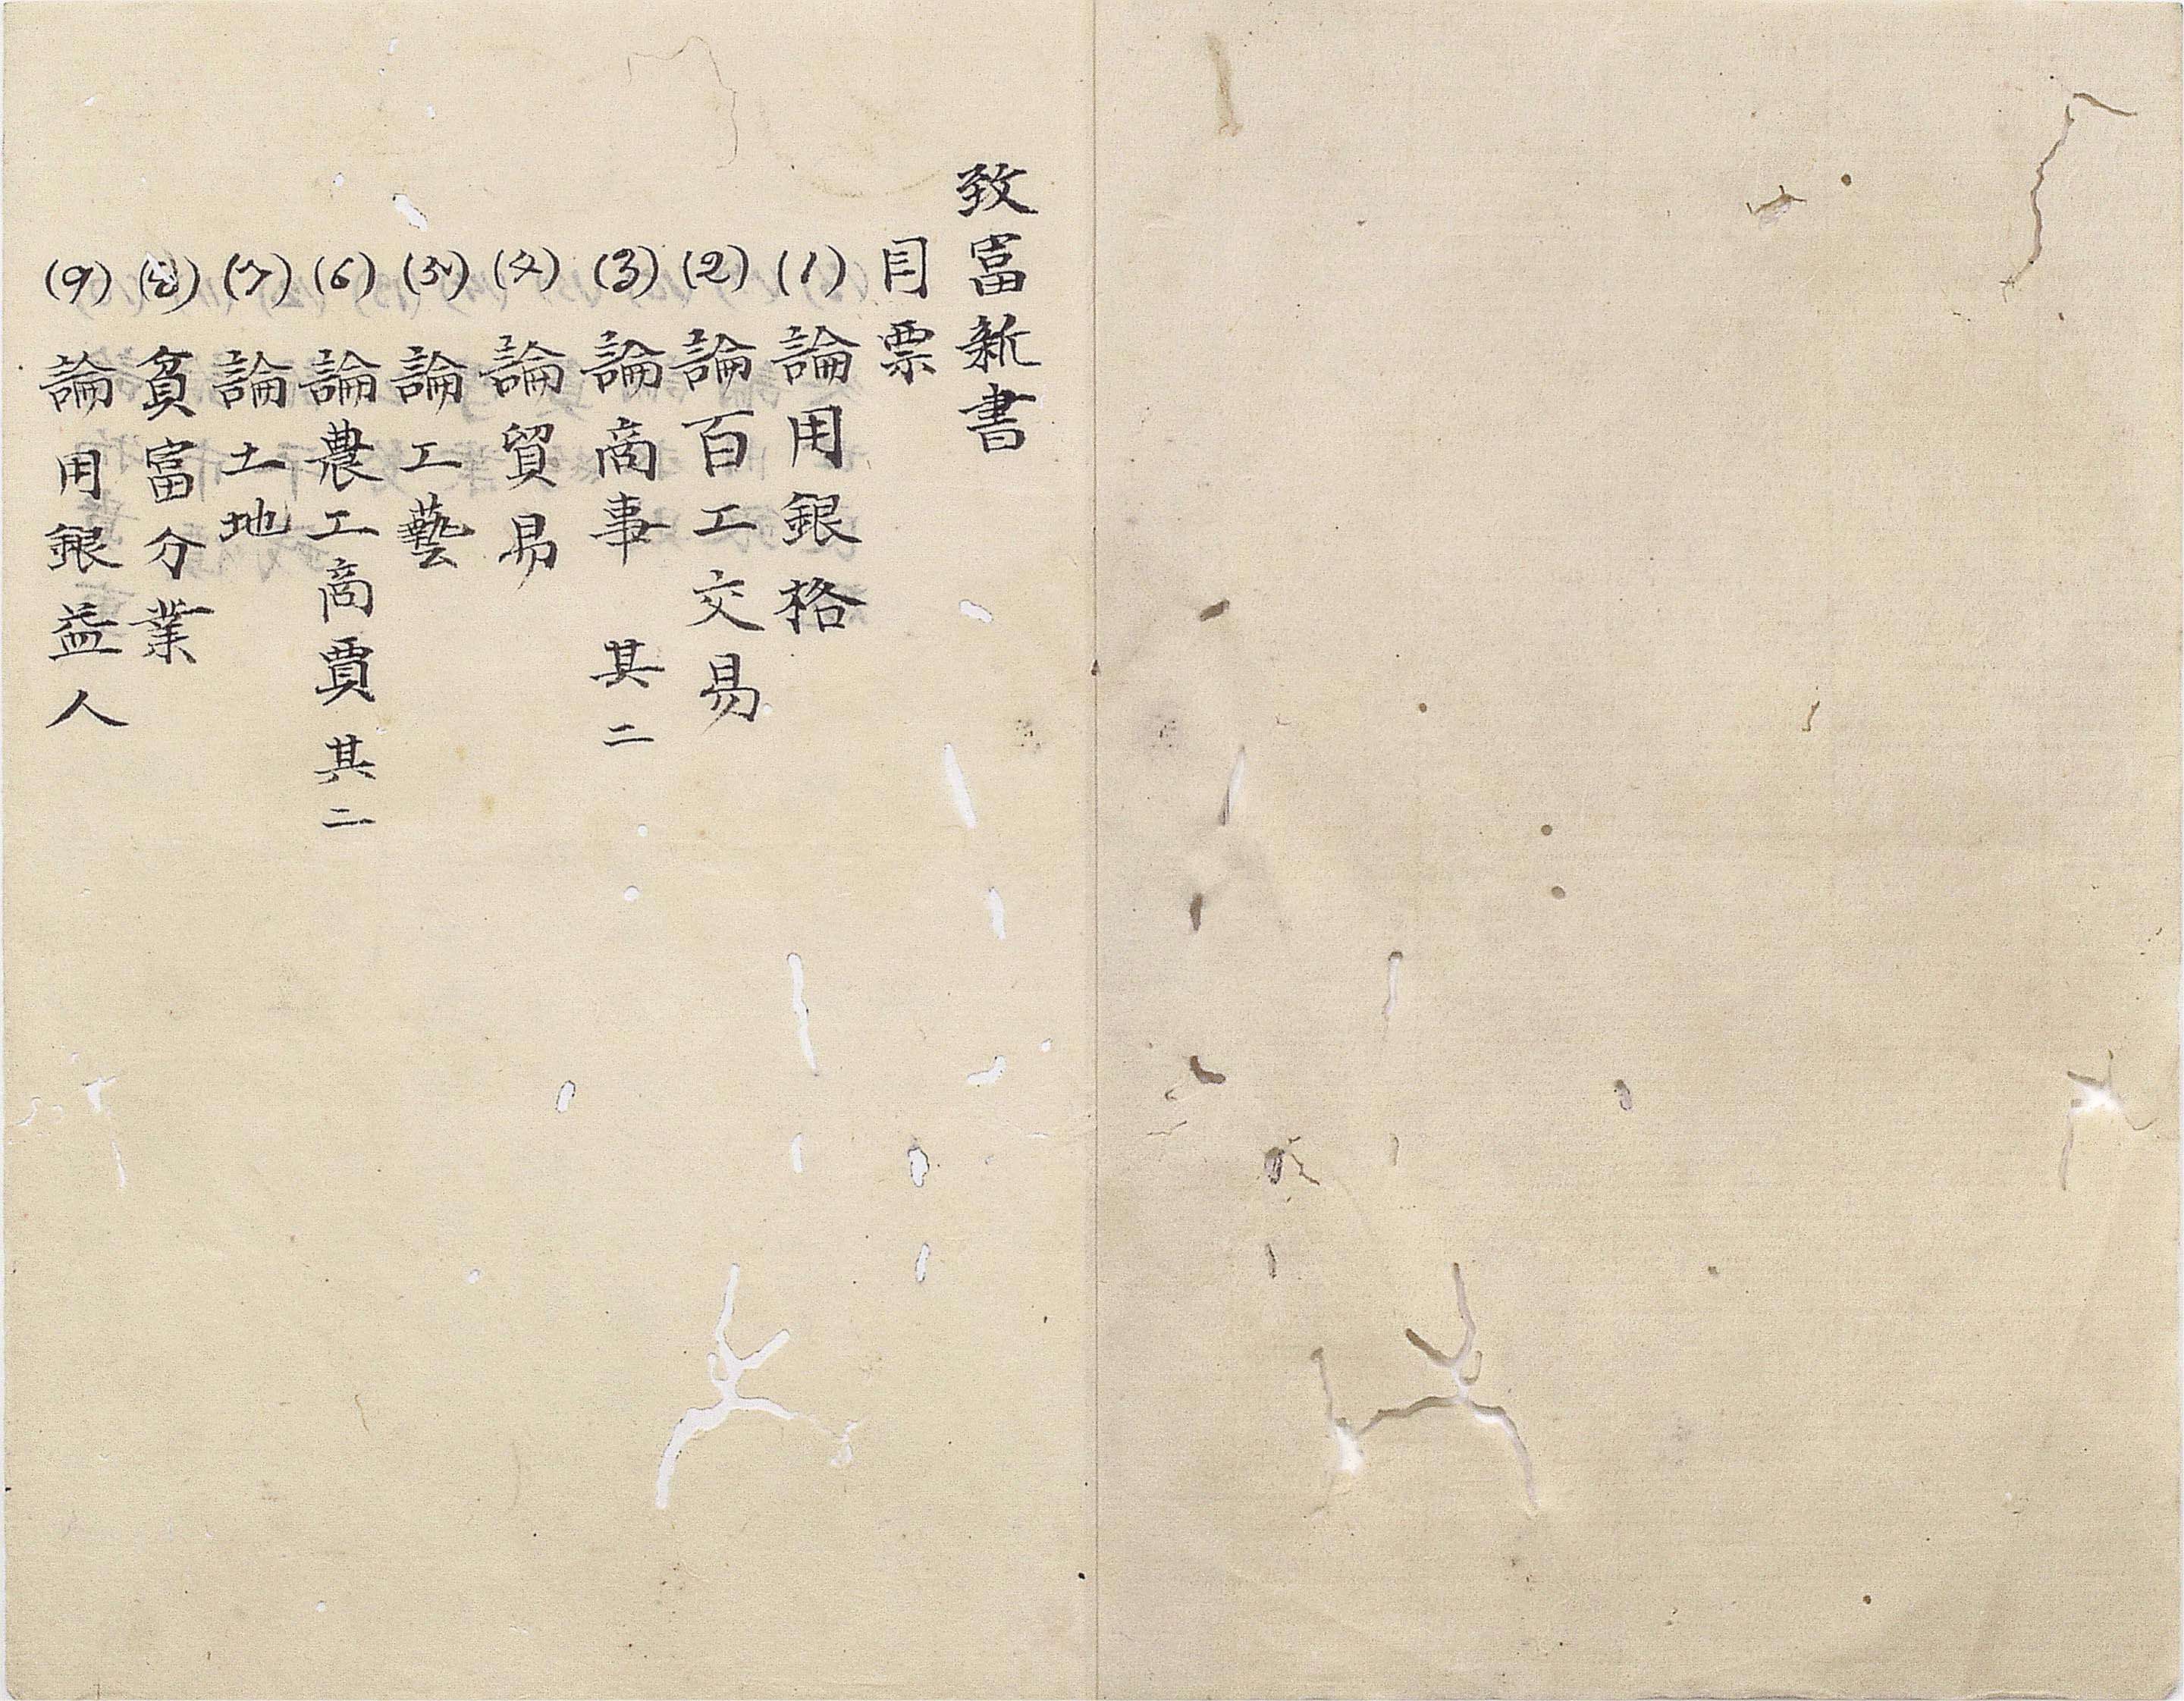 致富新書
目票
(1) 論用銀格
(2) 論百工交易
(3) 論商事 其二
(4) 論貿易
(5) 論工藝
(6) 論農工商賈 其二
(7) 論土地
(8) 貧富分業
(9) 論用銀益人